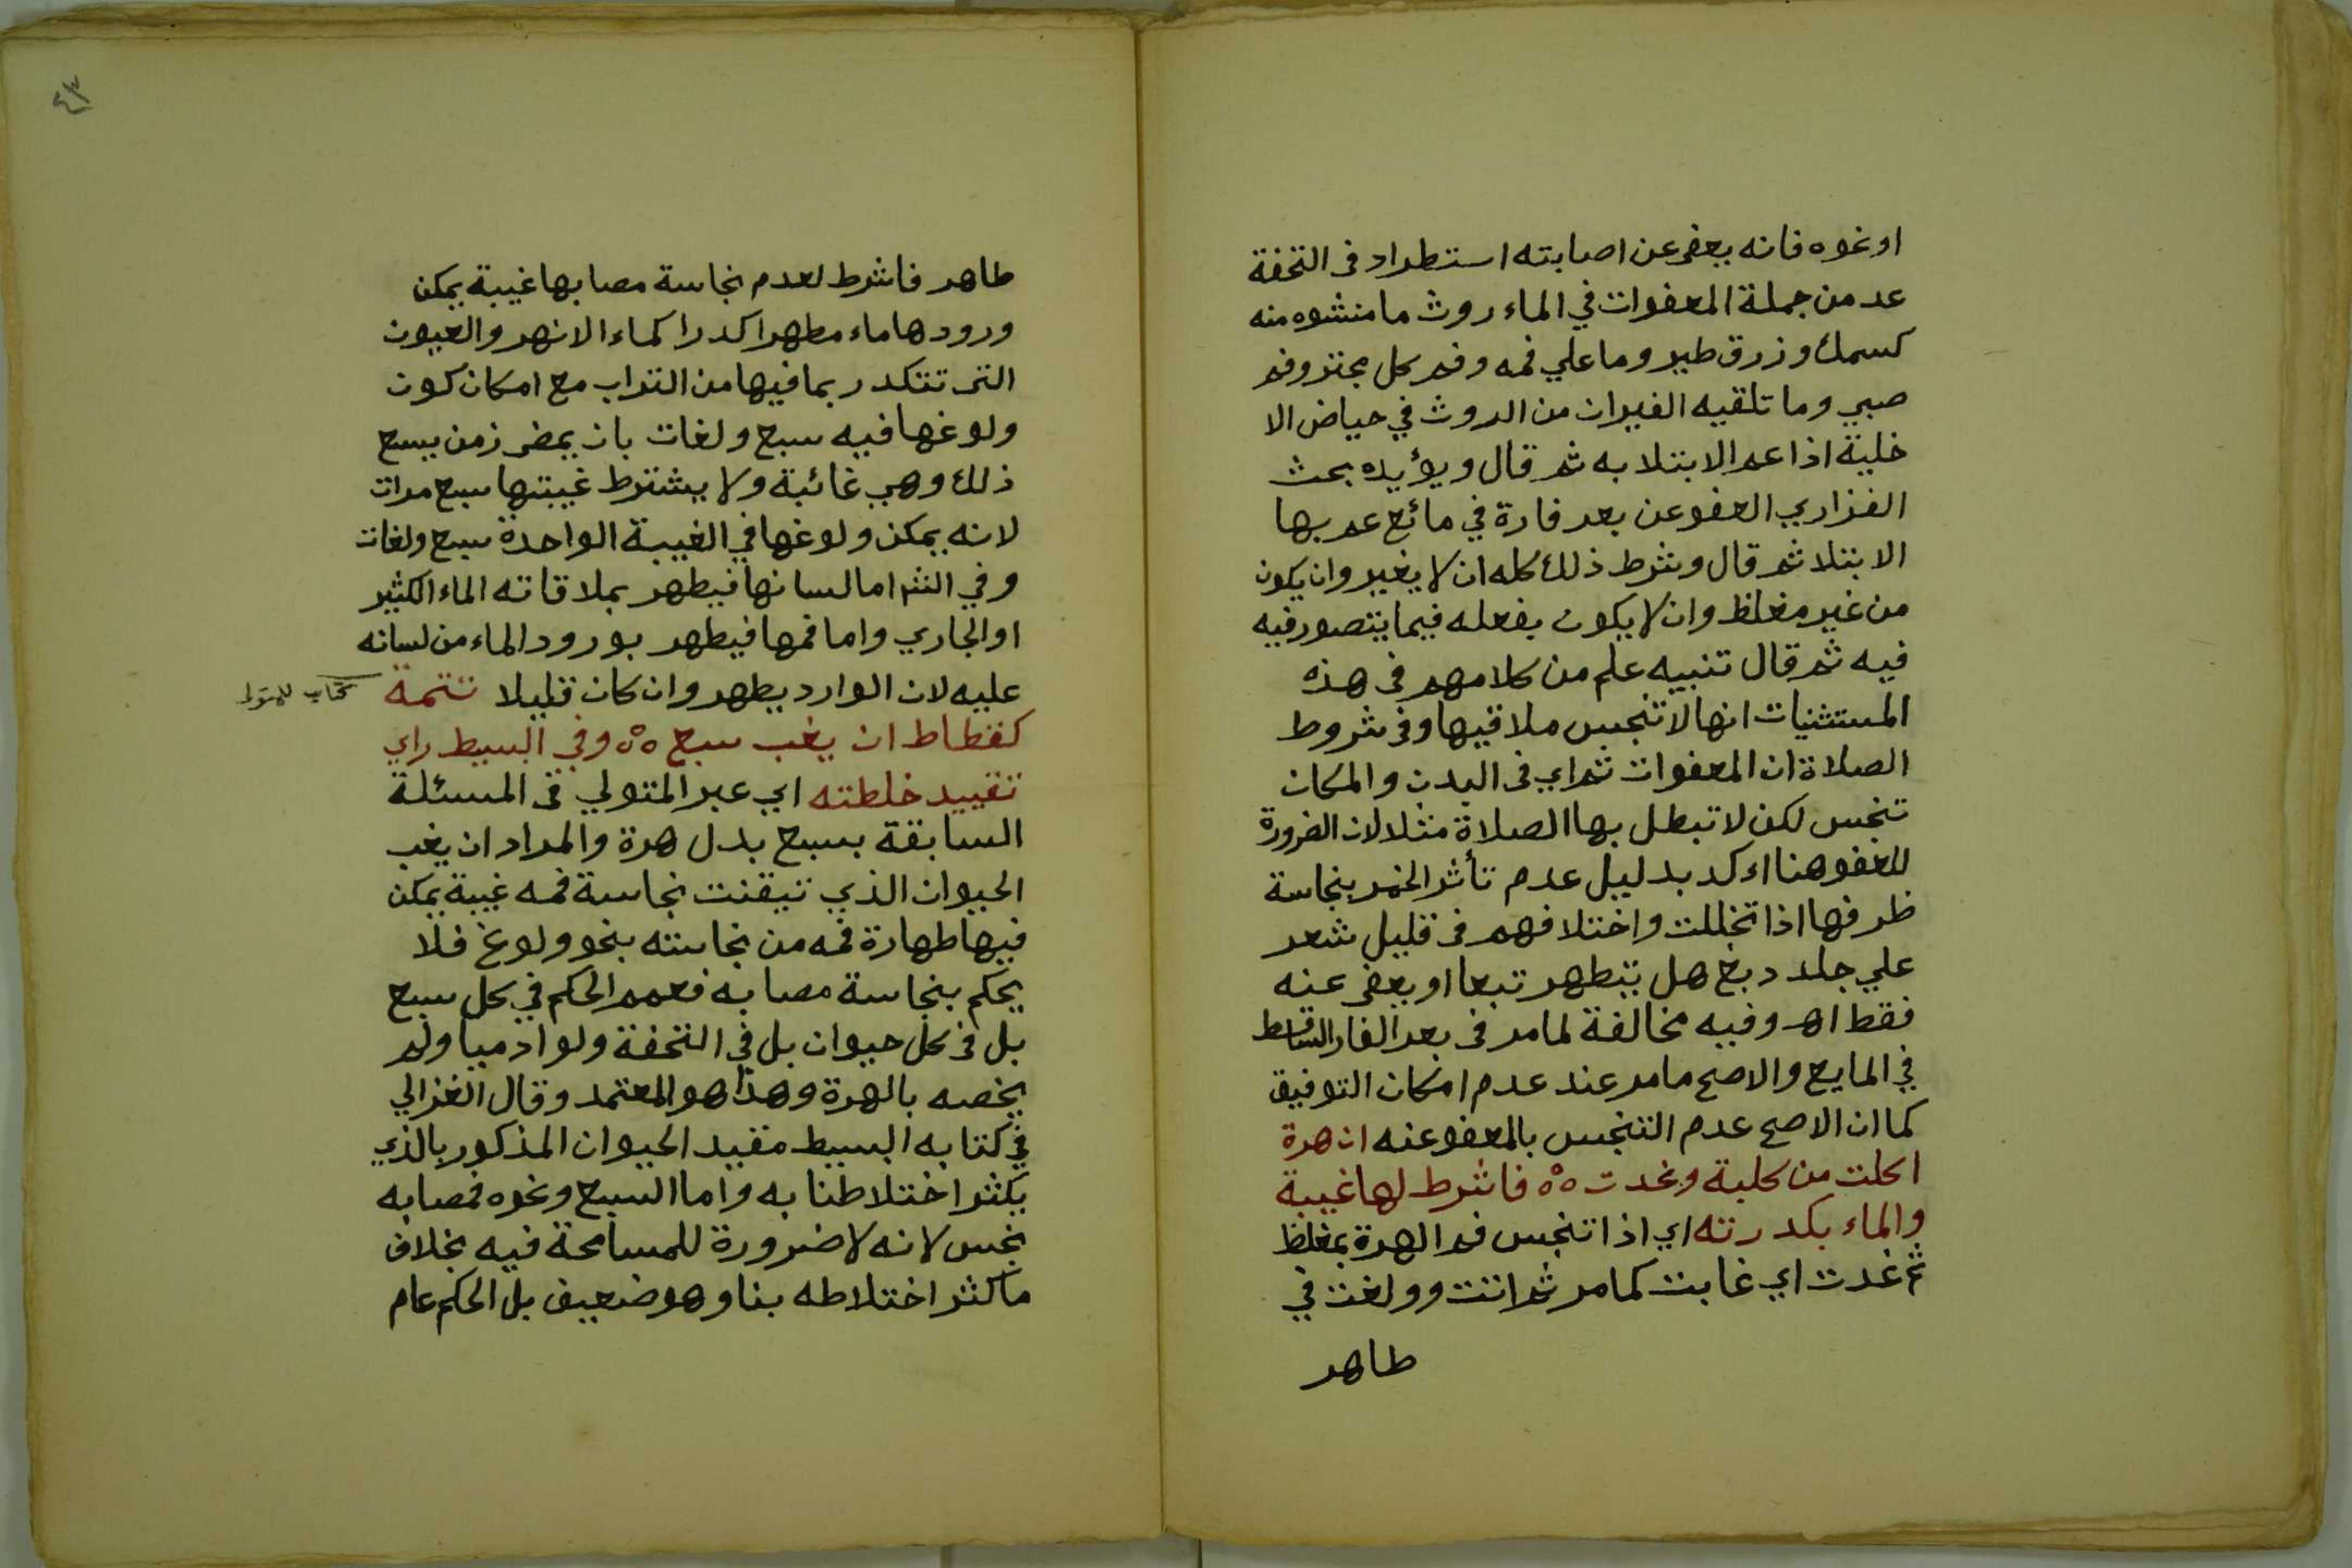 او نحوه فانه يعفى عن اصابته استطراد فى التحفة
عد من جملة المعفوات في الماء روث ما منشوه منه
كسمك وزرق طير وما علي فمه وفم كل مجتر وفم
صبي وما تلقيه الفيران من الروث في حياض الا
خلية اذا عم الابتلا به ثم قال ويؤيده بحث
الفزاري العفو عن بعر فارة في مائع عم بها
الابتلا ثم قال وشرط ذلك كله ان لا يغير وان يكون
من غير مغلظ وان لا يكون بفعله فيما يتصور فيه
فيه ثم قال تنبيه علم من كلامهم فى هذه
المستثنيات انها لا تنجس ملاقيها وفى شروط
الصلاة ان المعفوات ثم اي فى البدن والمكان
تنجس لكن لا تبطل بها الصلاة مثلا لان الضرورة
للعفو هنا اكد بدليل عدم تأثر الخمر بنجاسة
ظرفها اذا تخللت واختلافهم فى قليل شعر
علي جلد دبغ هل يتطهر تبعا او يعفى عنه
فقط اهـ وفيه مخالفة لما مر فى بعر الفار الساقط
في المايع والاصح ما مر عند عدم امكان التوفيق
كما ان الاصح عدم التنجس بالمعفو عنه ان هرة
اكلت من كلبة وغدت ٥٥ فاشرط لها غيبة
والماء بكدرته اي اذا تنجس فم الهرة بمغلظ
ثم غدت اي غابت كما مر ثم اتت وولغت في
طاهر
٤٣
طاهر فاشرط لعدم نجاسة مصابها غيبة يمكن
ورودها ماء مطهرا كدرا كماء الانهر والعيون
التى تتكدر بما فيها من التراب مع امكان كون
ولوغها فيه سبع ولغات بان يمضى زمن يسع
ذلك وهي غائبة ولا يشترط غيبتها سبع مرات
لانه يمكن ولوغها في الغيبة الواحدة سبع ولغات
وفي النثر اما لسانها فيطهر بملاقاته الماء الكثير
او الجاري واما فمها فيطهر بورود الماء من لسانه
عليه لان الوارد يطهر وان كان قليلا تتمة
كتاب للمتولى
كقطاط ان يغب سبع ٥٥ وفي البسيط راي
تقييد خلطته اي عبر المتولي فى المسئلة
السابقة بسبع بدل هرة والمراد ان يغب
الحيوان الذي تيقنت نجاسة فمه غيبة يمكن
فيها طهارة فمه من نجاسته بنحو ولوغ فلا
يحكم بنجاسة مصابه فعمم الحكم في كل سبع
بل فى كل حيوان بل في التحفة ولو ادميا ولم
يخصه بالهرة وهذا هو المعتمد وقال الغزالي
في كتابه البسيط مقيد الحيوان المذكور بالذي
يكثر اختلاطنا به واما السبع ونحوه فمصابه
نجس لانه لا ضرورة للمسامحة فيه بخلاف
ما كثر اختلاطه بنا وهو ضعيف بل الحكم عام